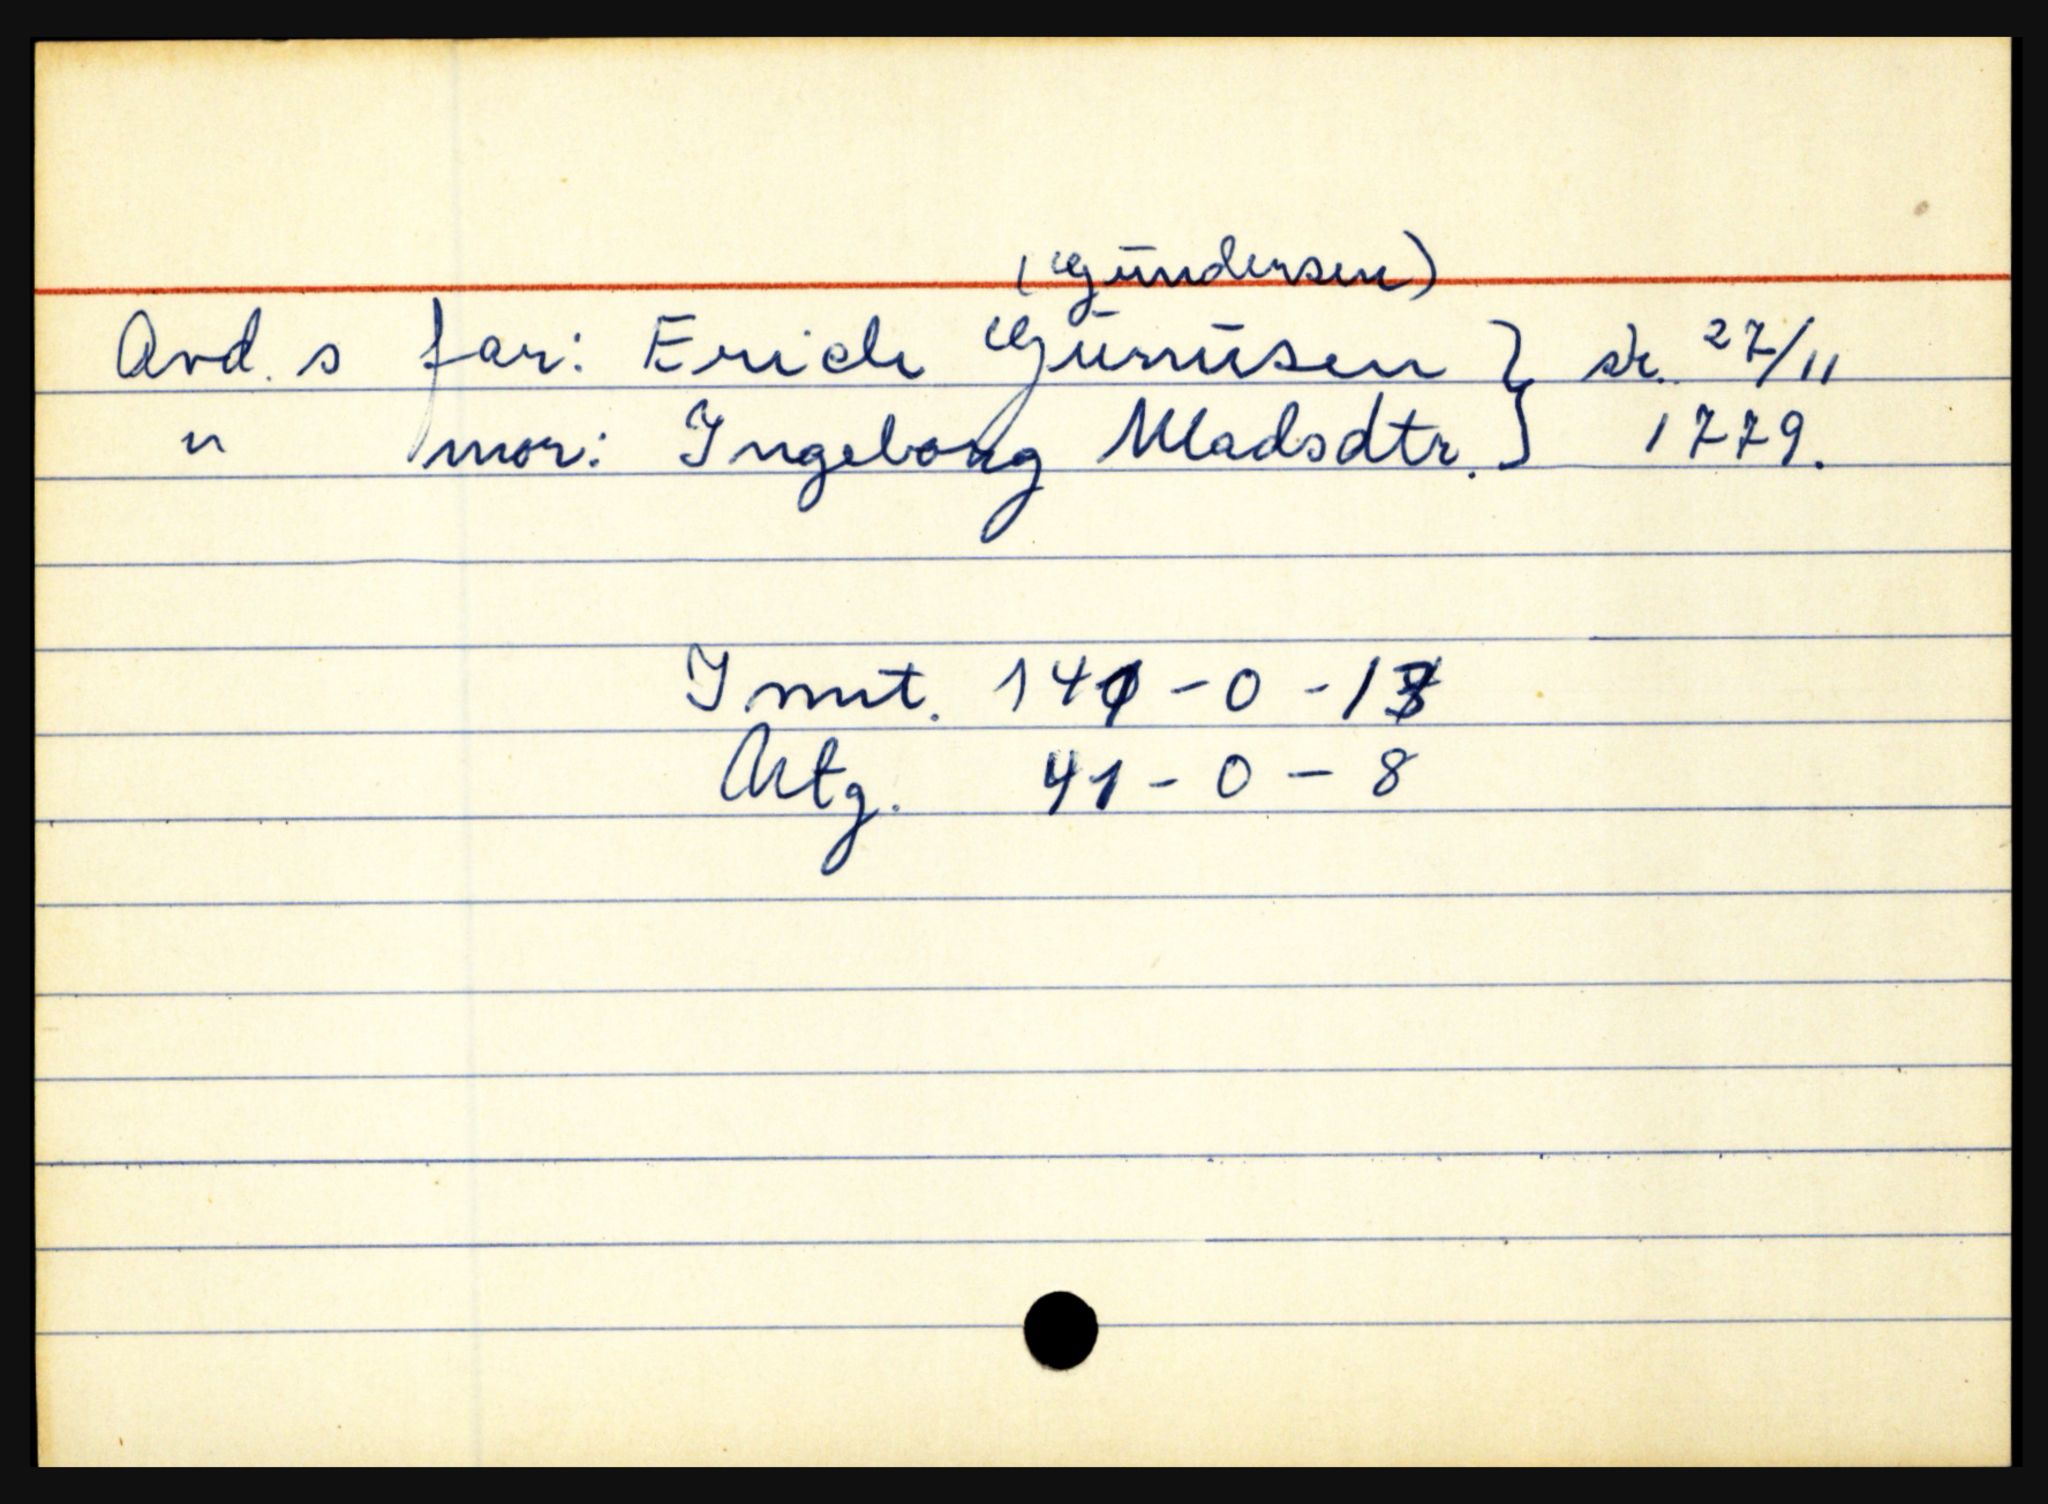 (Gundersen)
Avd. s far: Erich Gunnusen } sk. 27/11
" mor: Ingeborg Madsdtr. } 1779.
Innt. 141 - 0 - 13
Utg. 41 - 0 - 8